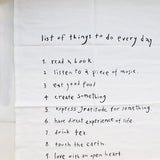 list of things to do every day
1. read a book.
2. listen to a piece of music.
3. eat good food
4. create something
5. express gratitude for something.
6. have direct experience of life.
7. drink tea.
8. touch the earth.
9. love with an open heart.